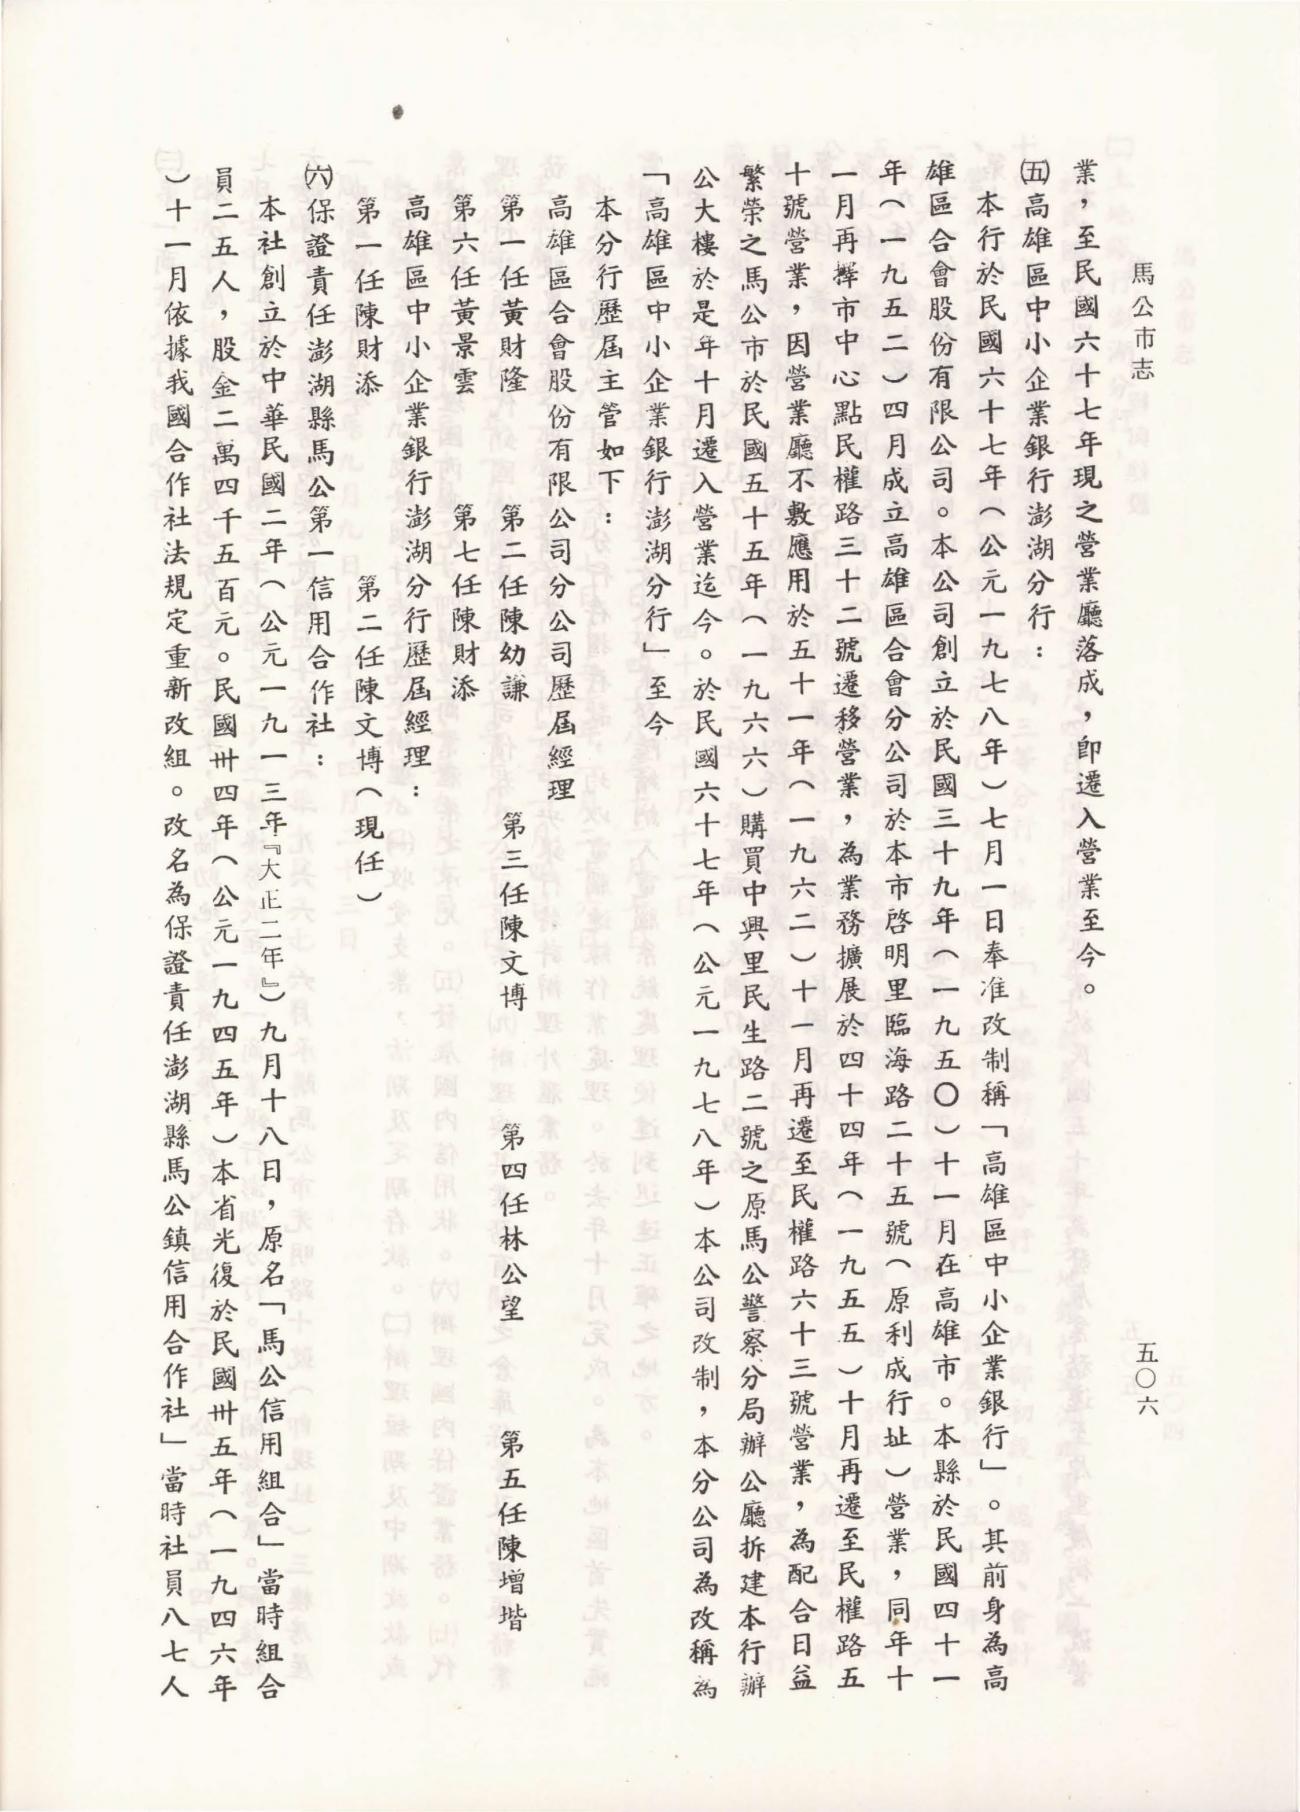 馬公市志
五〇六
業，至民國六十七年現之營業廳落成，卽遷入營業至今。
㈤高雄區中小企業銀行澎湖分行：
本行於民國六十七年（公元一九七八年）七月一日奉准改制稱「高雄區中小企業銀行」。其前身為高
雄區合會股份有限公司。本公司創立於民國三十九年（一九五〇）十一月在高雄市。本縣於民國四十一
年（一九五二）四月成立高雄區合會分公司於本市啓明里臨海路二十五號（原利成行址）營業，同年十
一月再擇市中心點民權路三十二號遷移營業，為業務擴展於四十四年（一九五五）十月再遷至民權路五
十號營業，因營業廳不敷應用於五十一年（一九六二）十一月再遷至民權路六十三號營業，為配合日益
繁榮之馬公市於民國五十五年（一九六六）購買中興里民生路二號之原馬公警察分局辦公廳拆建本行辦
公大樓於是年十月遷入營業迄今。於民國六十七年（公元一九七八年）本公司改制，本分公司為改稱為
「高雄區中小企業銀行澎湖分行」至今
本分行歷屆主管如下：
高雄區合會股份有限公司分公司歷屆經理
第一任黃財隆 第二任陳幼謙 第三任陳文博 第四任林公望 第五任陳增堦
第六任黃景雲 第七任陳財添
高雄區中小企業銀行澎湖分行歷屆經理：
第一任陳財添 第二任陳文博（現任）
㈥保證責任澎湖縣馬公第一信用合作社：
本社創立於中華民國二年（公元一九一三年『大正二年』）九月十八日，原名「馬公信用組合」當時組合
員二五人，股金二萬四千五百元。民國卅四年（公元一九四五年）本省光復於民國卅五年（一九四六年
）十一月依據我國合作社法規定重新改組。改名為保證責任澎湖縣馬公鎮信用合作社」當時社員八七人